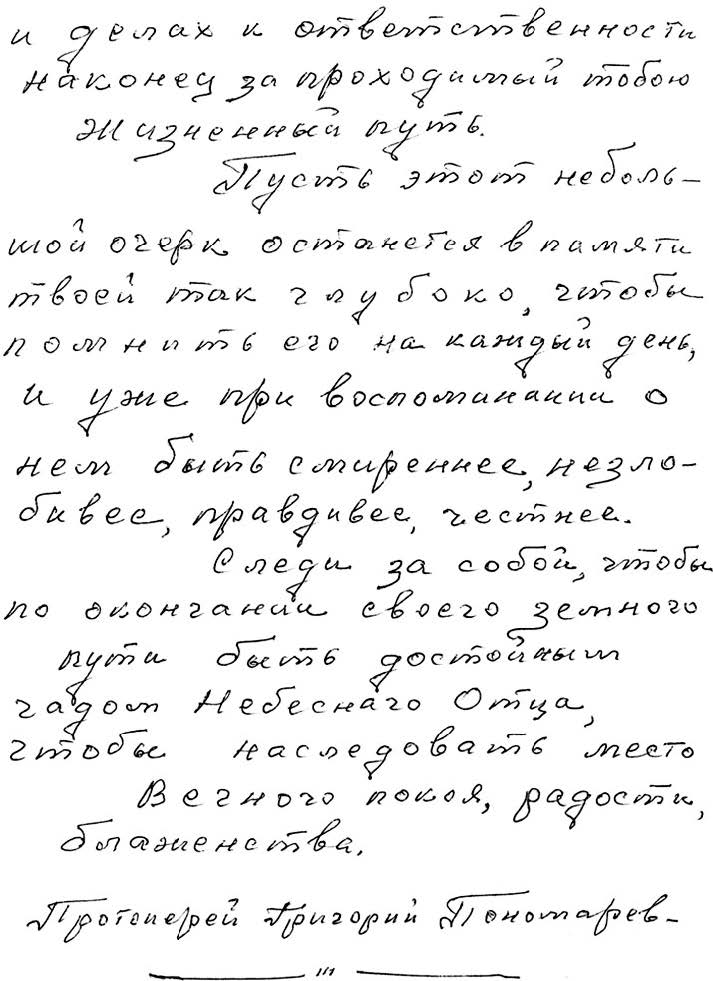 и делах к ответственности
наконец за проходимый тобою
жизненный путь.
Пусть этот неболь-
шой очерк останется в памяти
твоей так глубоко, чтобы
помнить его на каждый день,
и уже при воспоминании о
нем быть смиреннее, незло-
бивее, правдивее, честнее.
Следи за собой, чтобы
по окончании своего земного
пути быть достойным
чадом Небеснаго Отца,
чтобы наследовать место
Вечного покоя, радости,
блаженства.
Протоиерей Григорий Пономарев-